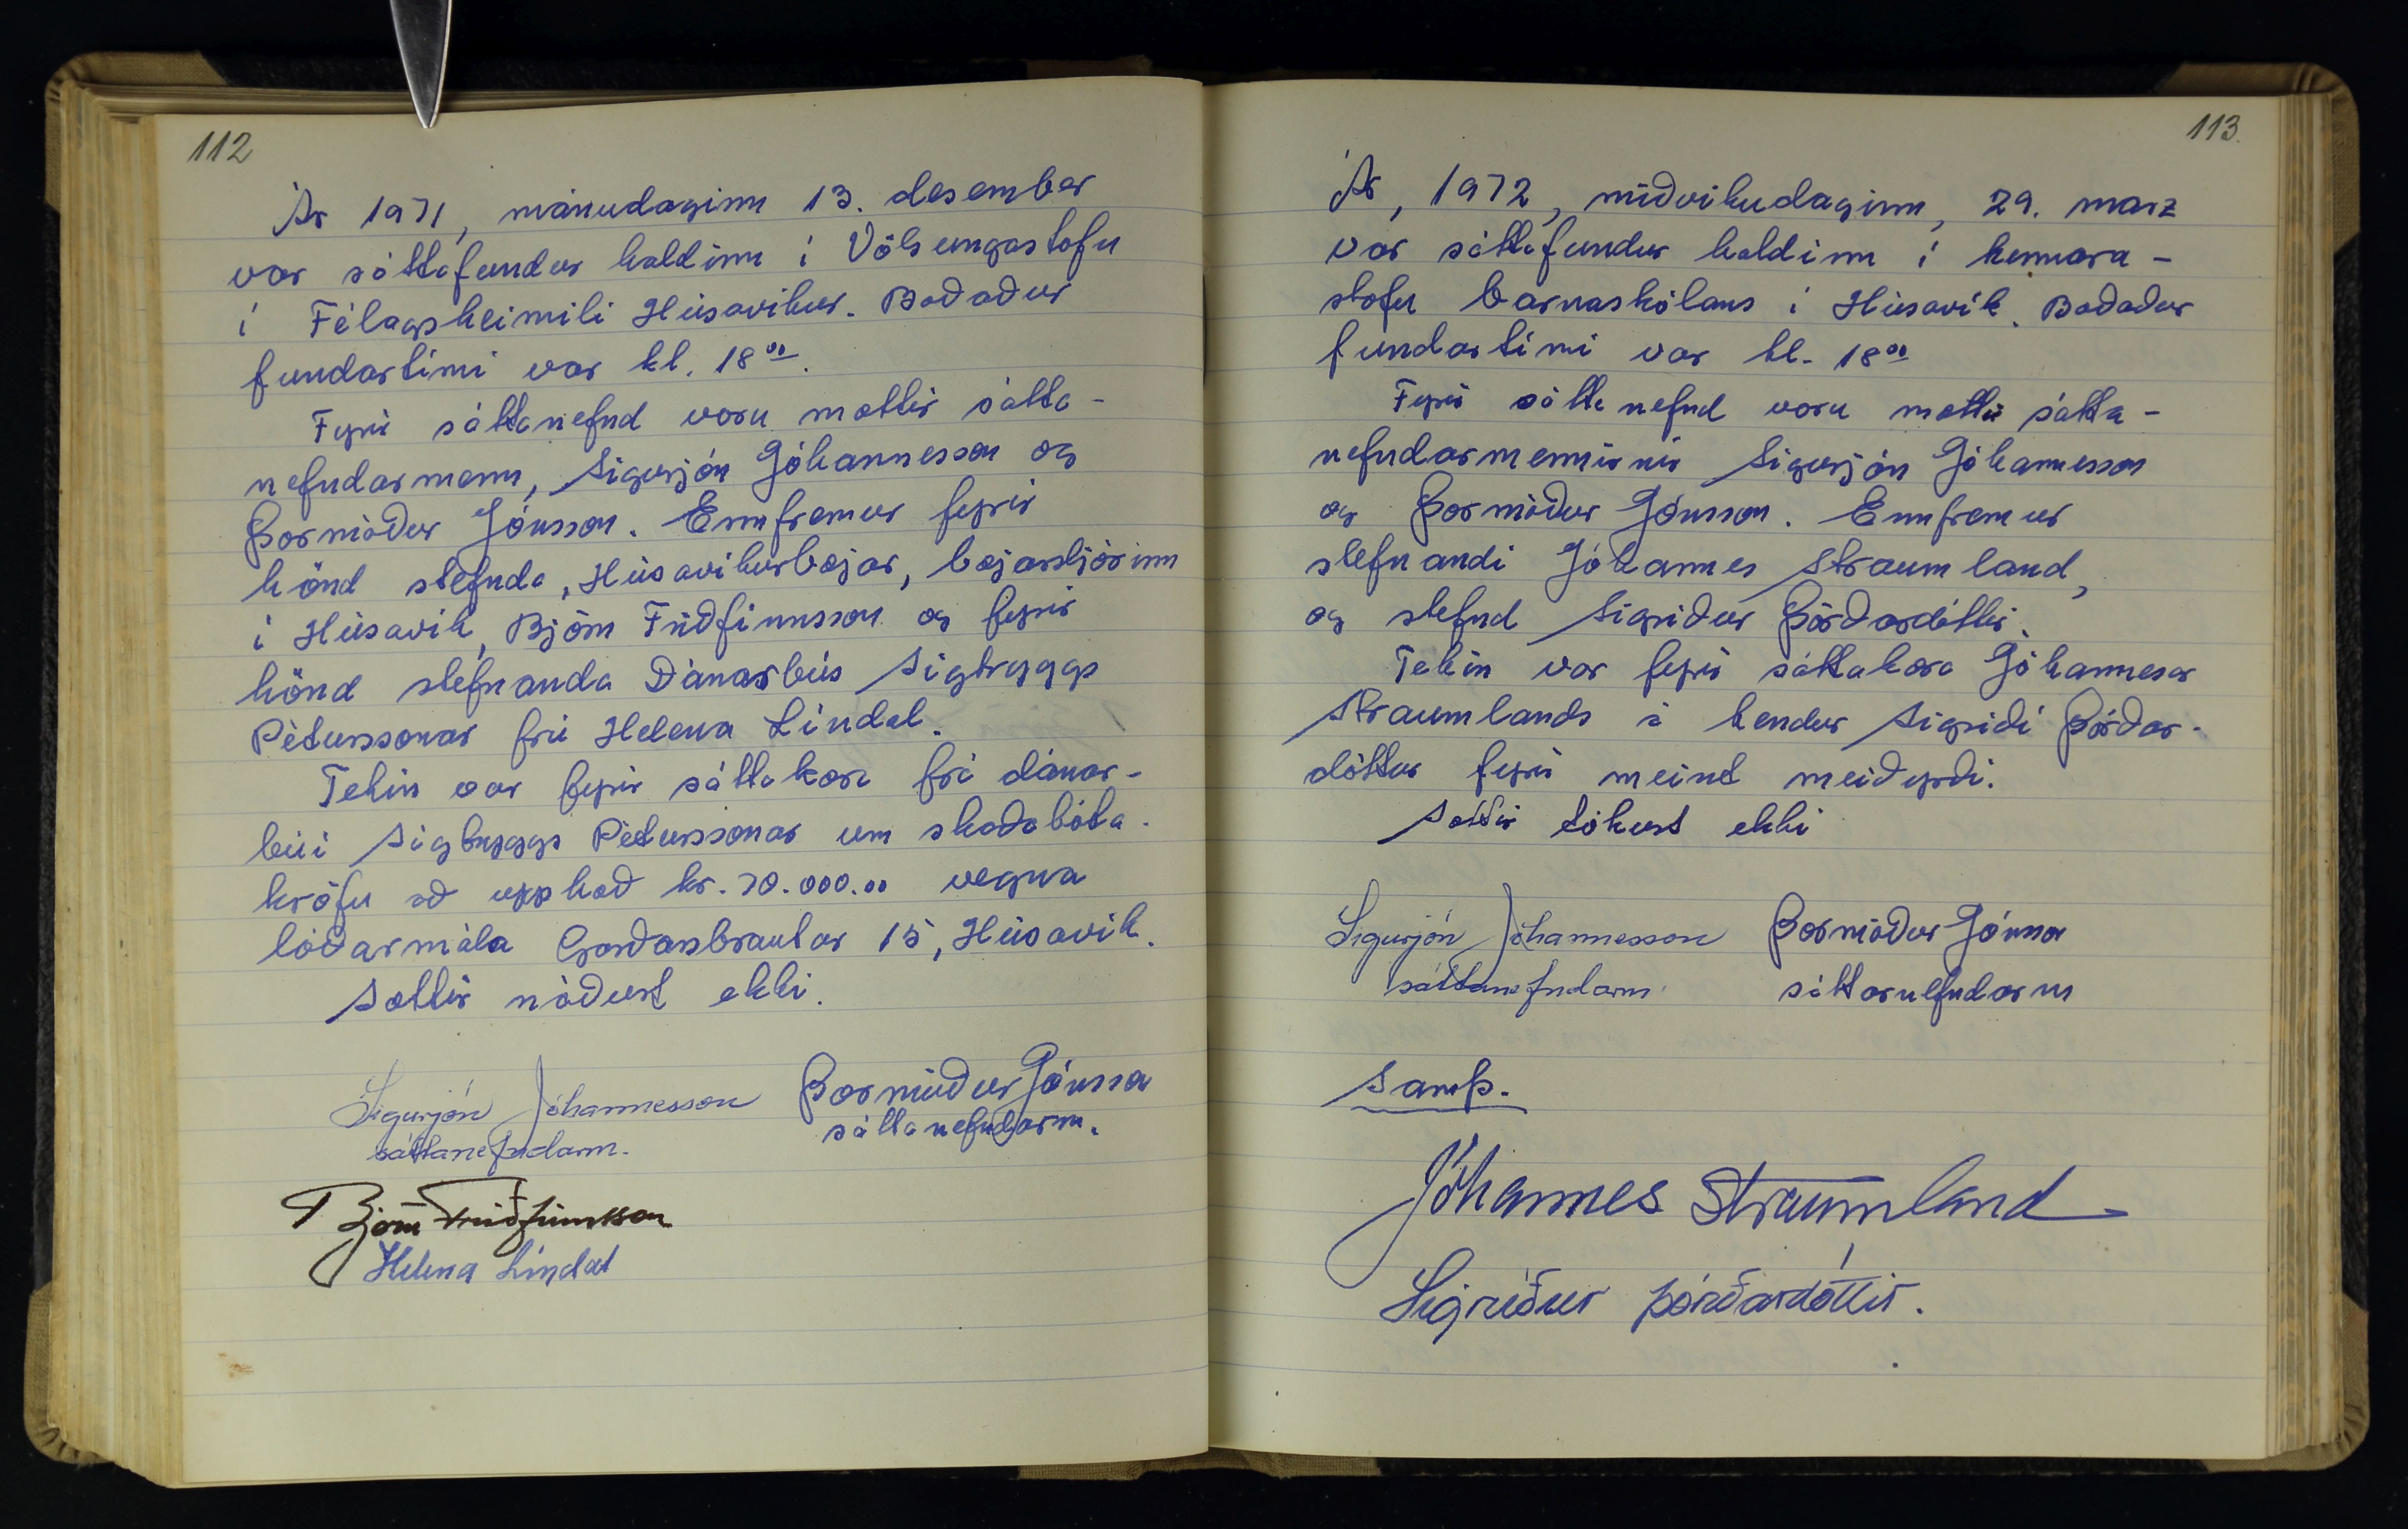 112
Ár 1971, mánudaginn 13. desember
var sáttafundur haldinn í Völsungastofu
í Félagsheimili Húsavíkur. Boðaður
fundartími var kl. 18⁰⁰.
Fyrir sáttanefnd voru mættir sátta-
nefndarmenn, Sigurjón Jóhannesson og
Þormóður Jónsson. Ennfremur fyrir
hönd stefnda, Húsavíkurbæjar, bæjarstjórinn
í Húsavík, Björn Friðfinnsson og fyrir
hönd stefnanda Dánarbús Sigtryggs
Péturssonar frú Helena Líndal.
Tekin var fyrir sáttakæra frá dánar-
búi Sigtryggs Péturssonar um skaðabóta-
kröfu að upphæð kr. 70.000.00 vegna
lóðarmála Garðarsbrautar 15, Húsavík.
Sættir náðust ekki.
Sigurjón Jóhannesson Þormóður Jónsson
sáttanefndarm. sáttanefndarm.
Björn Friðfinnsson
Helena Líndal
113.
Ár, 1972, miðvikudaginn, 29. marz
var sáttafundur haldinn í kennara-
stofu barnaskólans í Húsavík. Boðaður
fundartími var kl. 18⁰⁰
Fyrir sáttanefnd voru mættir sátta-
nefndarmennirnir Sigurjón Jóhannesson
og Þormóður Jónsson. Ennfremur
stefnandi Jóhannes Straumland,
og stefnd Sigríður Þórðardóttir.
Tekin var fyrir sáttakæra Jóhannesar
Straumlands á hendur Sigríði Þórðar-
dóttur fyrir meint meiðyrði.
Sættir tókust ekki
Sigurjón Jóhannesson Þormóður Jónsson
sáttanefndarm. sáttarnefndarm
Samþ.
Jóhannes Straumland
Sigríður Þórðardóttir.